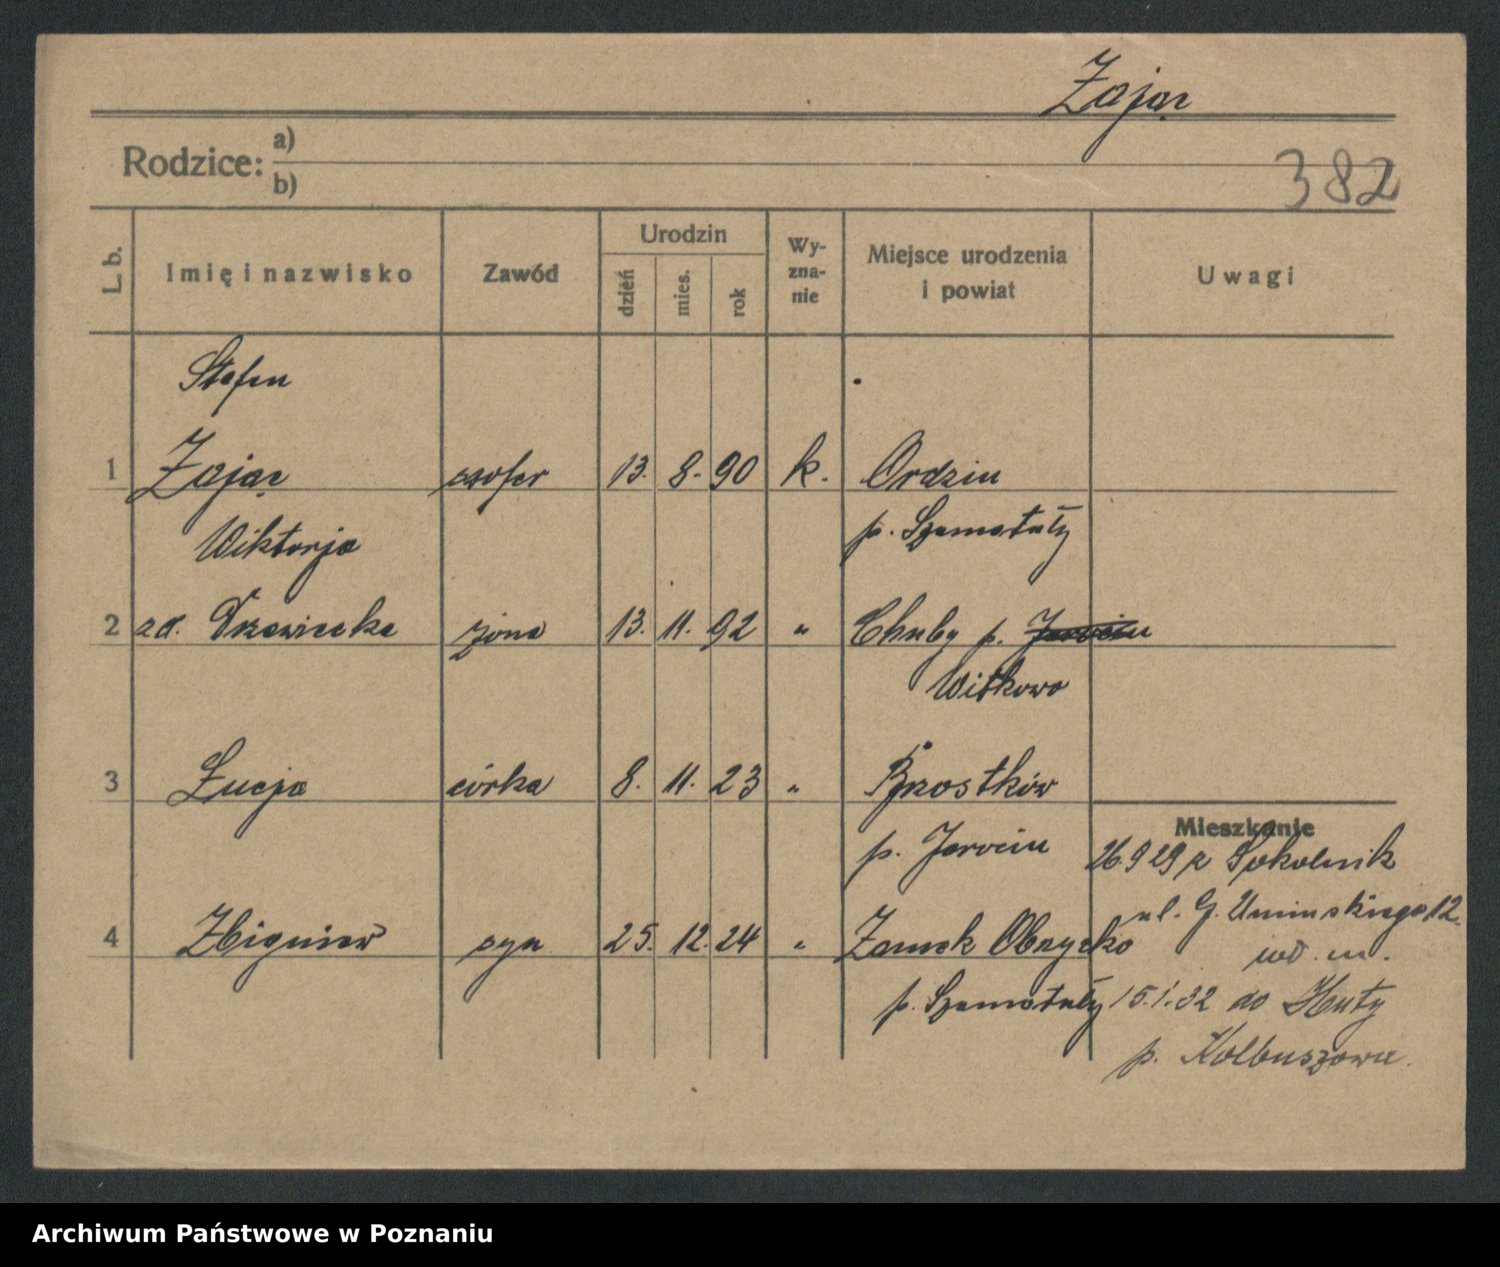 Zając
Rodzice: a)
b)
382
L. b.
Imię i nazwisko
Zawód
Urodzin
dzień
mies.
rok
Wy-
zna-
nie
Miejsce urodzenia
i powiat
Uwagi
Stefan
1 Zając szofer 13. 8. 90 k. Ordzin
Wiktorja p. Szamotuły
2 zd. żona 13. 11. 92 " Chuby p. Jarocin
Witkowo
3 Łucja córka 8. 11. 23 " Brzostków
Mieszkanie
p. Jarocin 26 9 29 z Sokolnik
ul. G. Umińskiego 12.
4 Zbigniew syn 25. 12. 24 " Zamek Obrzycko
wd. m.
p. Szamotuły 15.1.32 do Huty
p. Kolbuszowa.
Archiwum Państwowe w Poznaniu